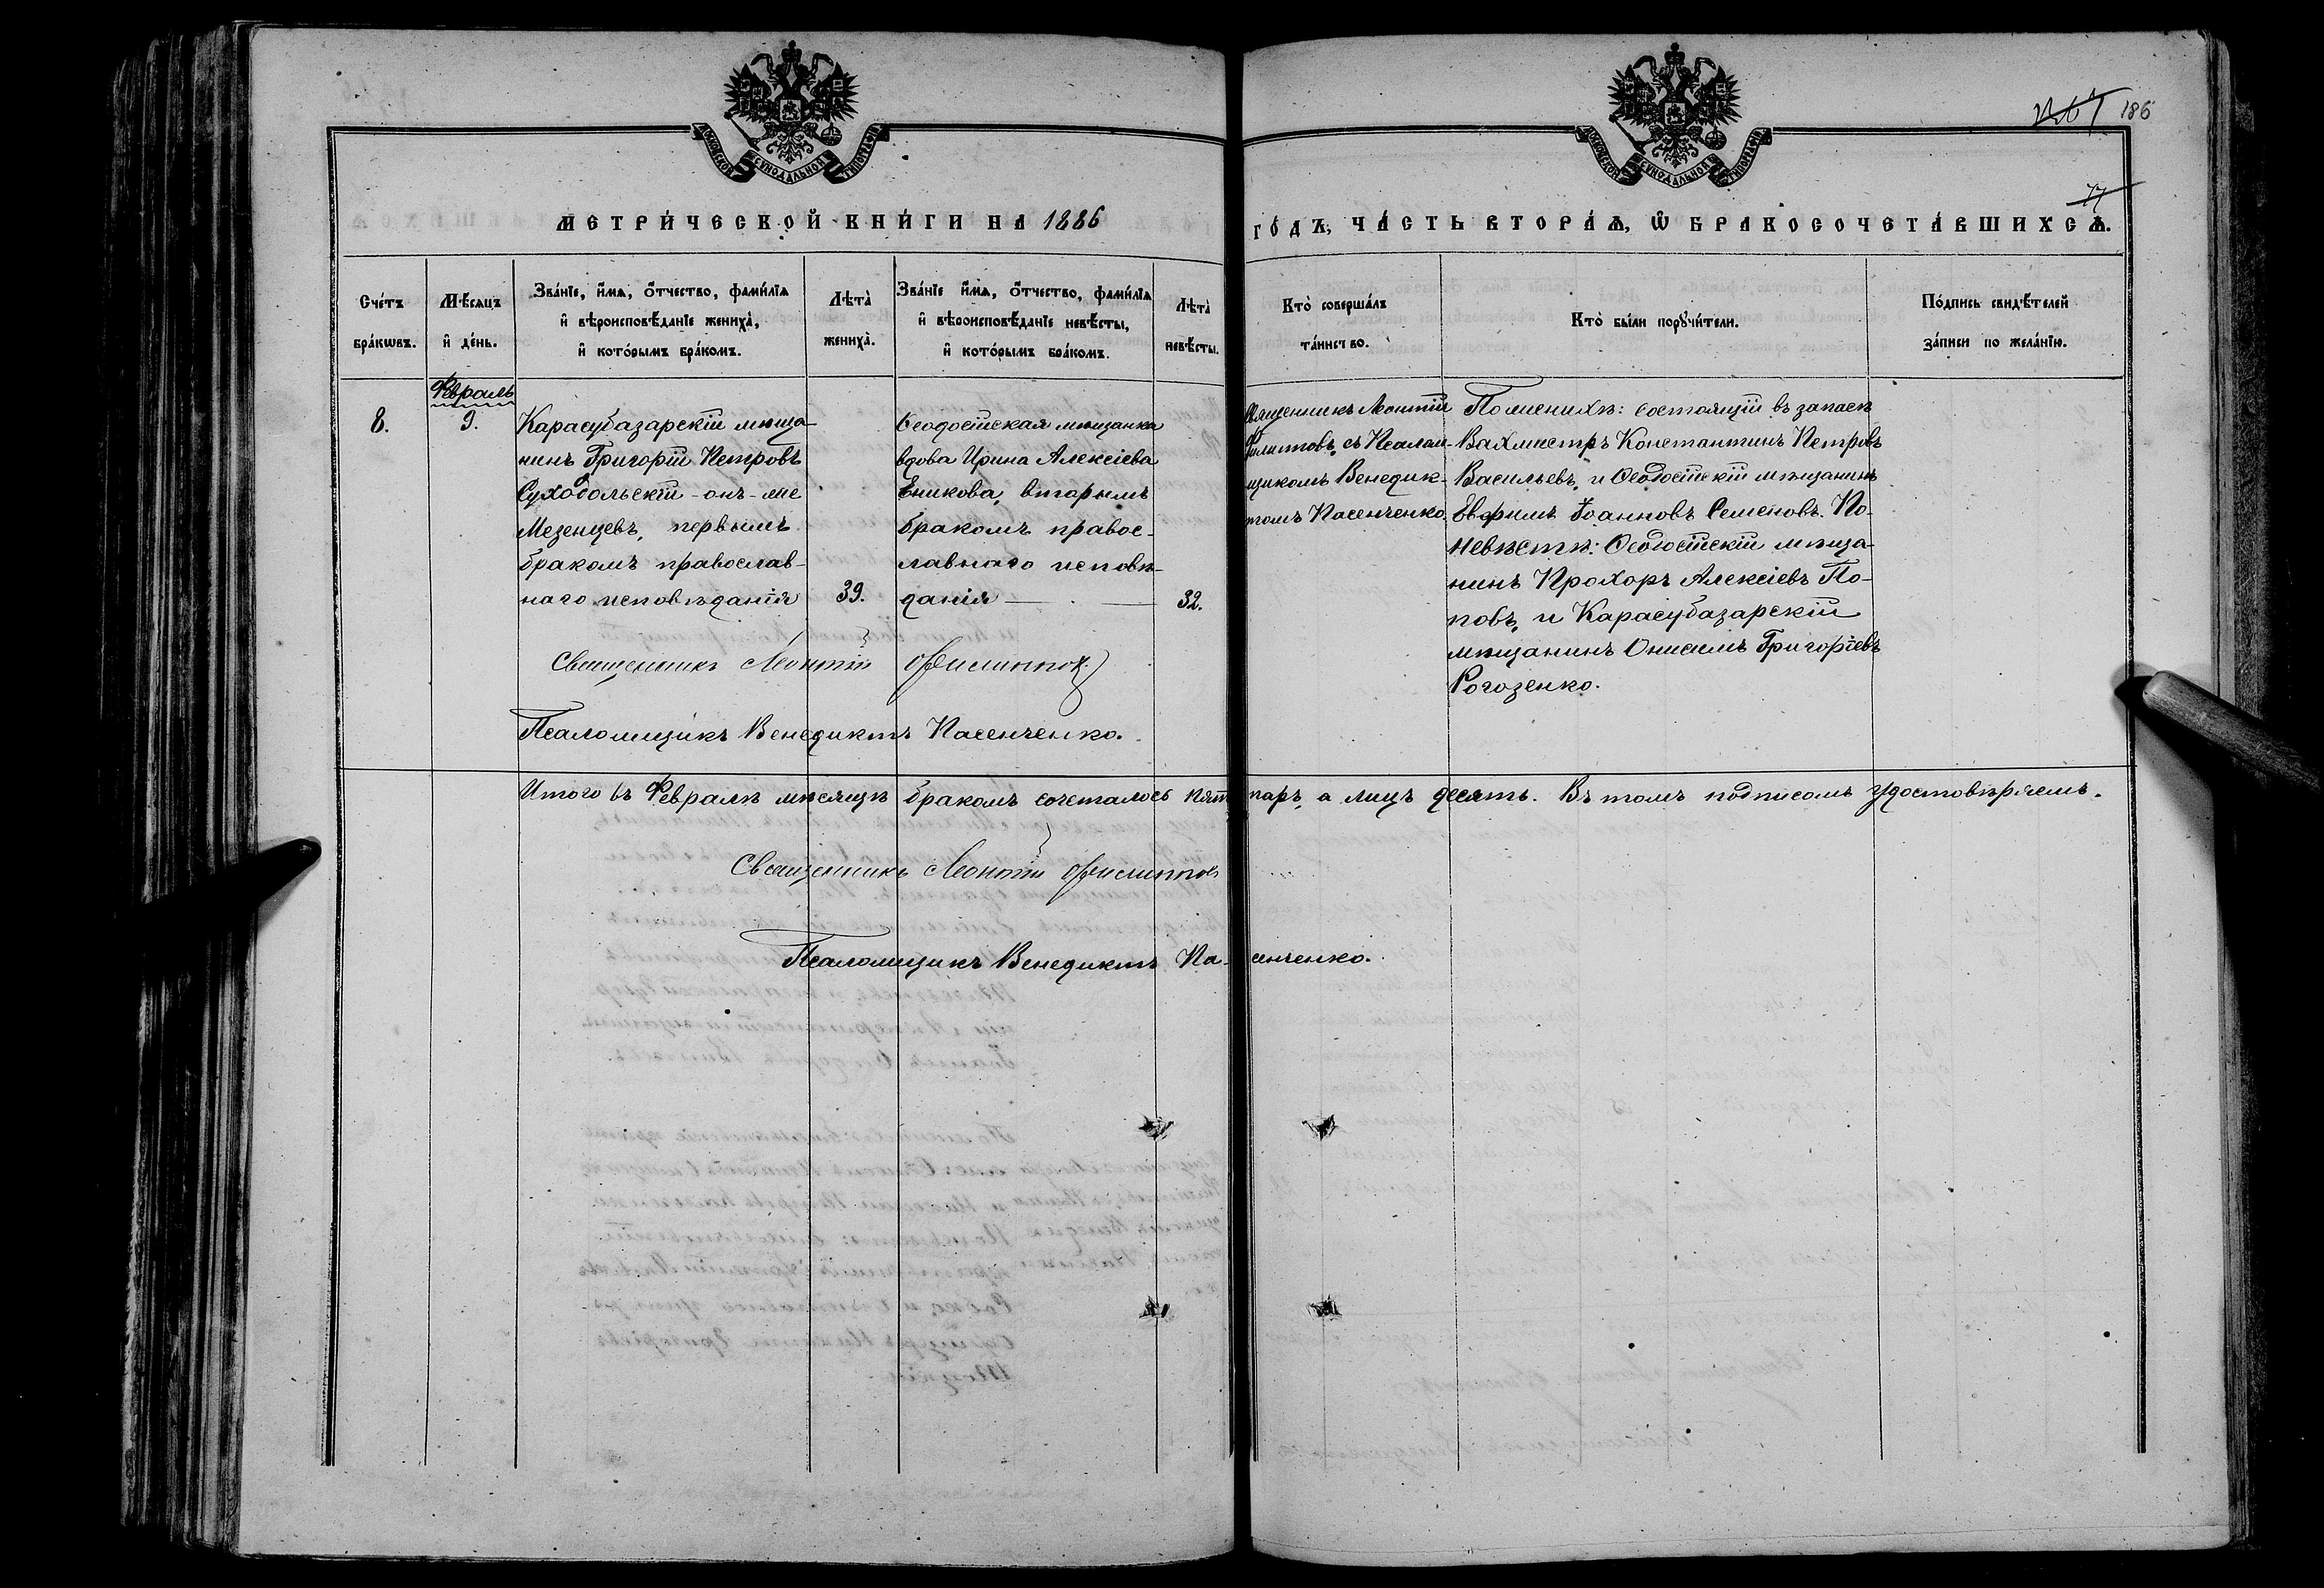 186
77
МЕТРИ́ЧЕСКОЙ КНИ́ГИ НА 1886
ГО́ДЪ, ЧА́СТЬ ВТОРА́Ѧ, Ѡ҆ БРАКОСОЧЕТА́ВШИХСѦ.
Сче́тъ бра́кѡвъ.
Мѣ́сяцъ и҆ де́нь.
Зва́нїе, и҆́мѧ, ѻ҆́тчество, фами́лїѧ
и҆ вѣроисповѣ́данїе жениха̀,
и҆ кото́рымъ бра́комъ.
Лѣта̀ жениха̀.
Зва́нїе и҆́мѧ, ѻ҆́тчество, фами́лїѧ
и҆ вѣроисповѣ́данїе невѣ́сты,
и҆ кото́рымъ бра́комъ.
Лѣта̀ невѣ́сты.
Кто̀ соверша́лъ та́инство.
Кто̀ бы́ли порꙋчи́тели.
По́дпись свидѣ́телей
за́писи по жела́нїю.
Февраль
8.
9.
Карасубазарскій мѣща-
нинъ Григорій Петровъ
Суходольскій - онъ-же
Мезенцевъ, первымъ
бракомъ православ-
наго исповѣданія
39.
Ѳеодосійская мѣщанка
вдова Ирина Алексіева
Еникова, вторымъ
бракомъ правос-
лавнаго исповѣ-
данія
32.
Священникъ Леонтій
Филипповъ, съ Псалом-
щикомъ Венедик-
томъ Пасенченко.
По женихѣ: состоящій въ запасѣ
Вахмистръ Константинъ Петровъ
Васильевъ, и Ѳеодосійскій мѣщанинъ
Евфимъ Іоанновъ Семеновъ. По
невѣстѣ: Ѳеодосійскій мѣща-
нинъ Прохоръ Алексіевъ По-
повъ, и Карасубазарскій
мѣщанинъ Онисимъ Григоріевъ
Рогозенко.
Священникъ Леонтій Филиппов
Псаломщикъ Венедиктъ Пасенченко.
Итого въ Февралѣ мѣсяцѣ бракомъ сочеталось пять паръ, а лицъ десять. Въ томъ подписомъ удостовѣряемъ.
Священникъ Леонтій Филиппов
Псаломщикъ Венедиктъ Пасенченко.